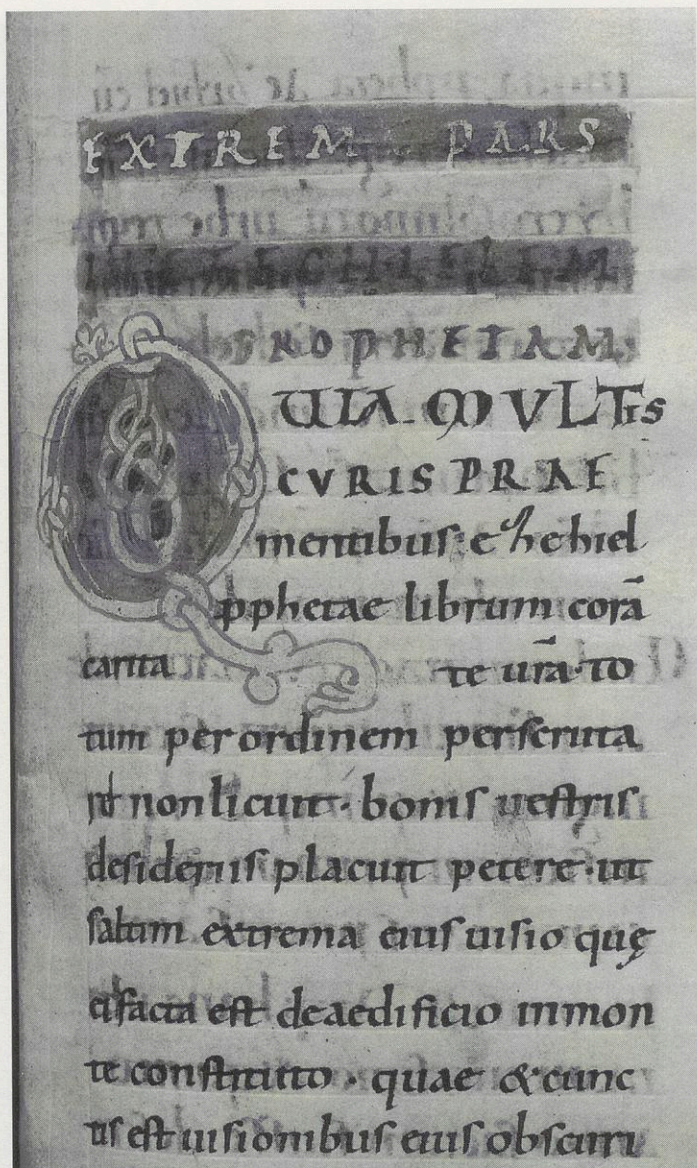 EXTREM PARS
HIEZECHIELEM
PROPHETAM
QUIA MVLTIS
CVRIS PRAE
mentibus e hiezechiel
pphetae librum corā
carita te urā to
tum per ordinem perscruta
ri non licuit · bonis uestris
desideriis placuit petere · ut
saltim extrema eius uisio quę
ei facta est de aedificio in mon
te constituto · quae & cunc
tis est uisionibus eius obscuri